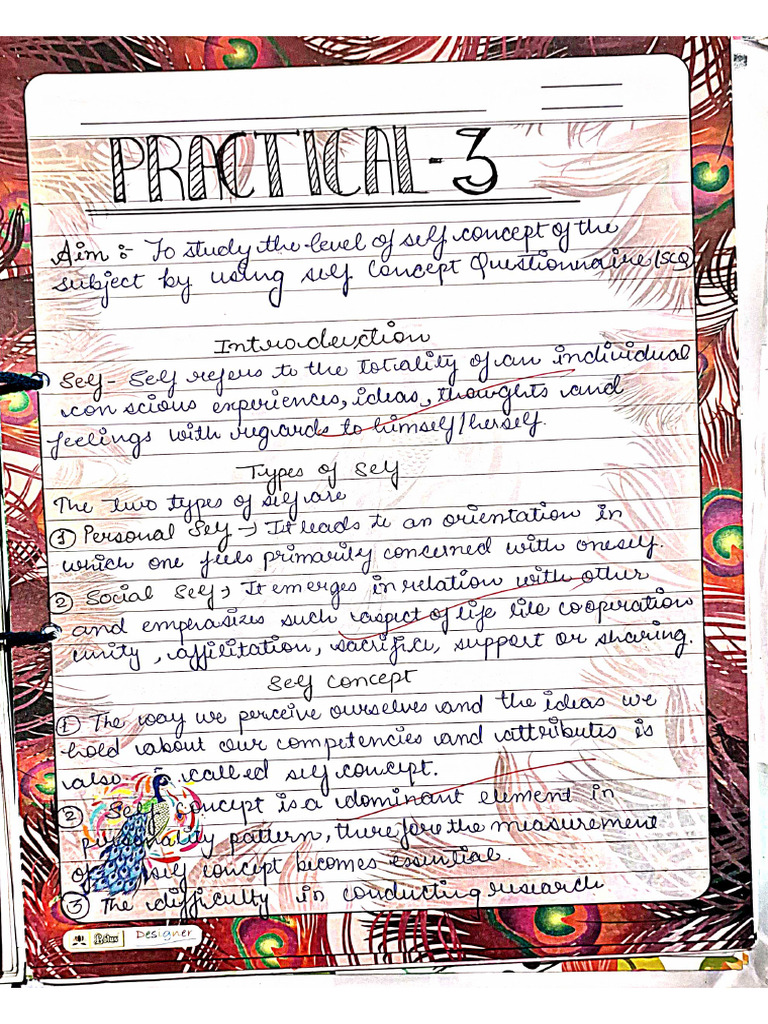 PRACTICAL-3
Aim :- To study the level of self concept of the
subject by using self Concept Questionnaire (SCQ)
Introduction
Self - Self refers to the totality of an individual
conscious experiences, ideas, thoughts and
feelings with regards to himself/herself.
Types of Self
The two types of self are
① Personal Self → It leads to an orientation in
which one feels primarily concerned with oneself.
② Social Self → It emerges in relation with other
and emphasizes such aspect of life like cooperation
unity, affilitation, sacrifice, support or sharing.
Self Concept
① The way we perceive ourselves and the ideas we
hold about our competencies and attributes is
also called self concept.
② Self concept is a dominant element in
personality pattern, therefore the measurement
of self concept becomes essential.
③ The difficulty in conducting research
Lotus Designer